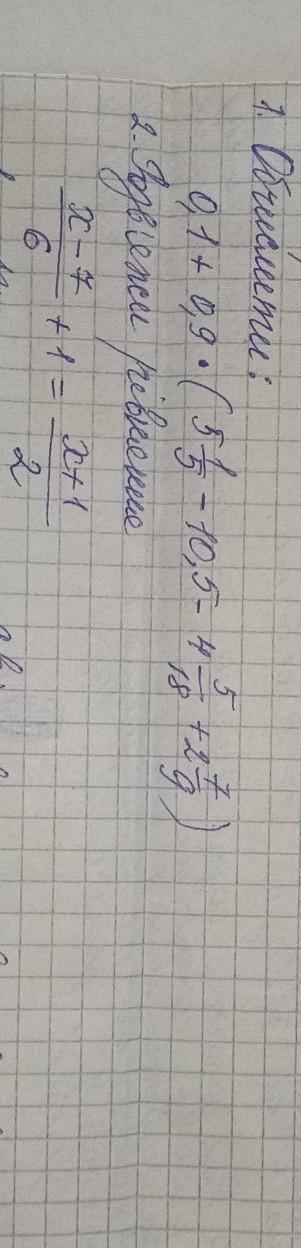 1. Обчислити:
0,1 + 0,9 · ( 5 1/5 - 10,5 - 4 5/18 + 2 7/9 )
2. Розв'яжи рівнення
x - 7 / 6 + 1 = x + 1 / 2